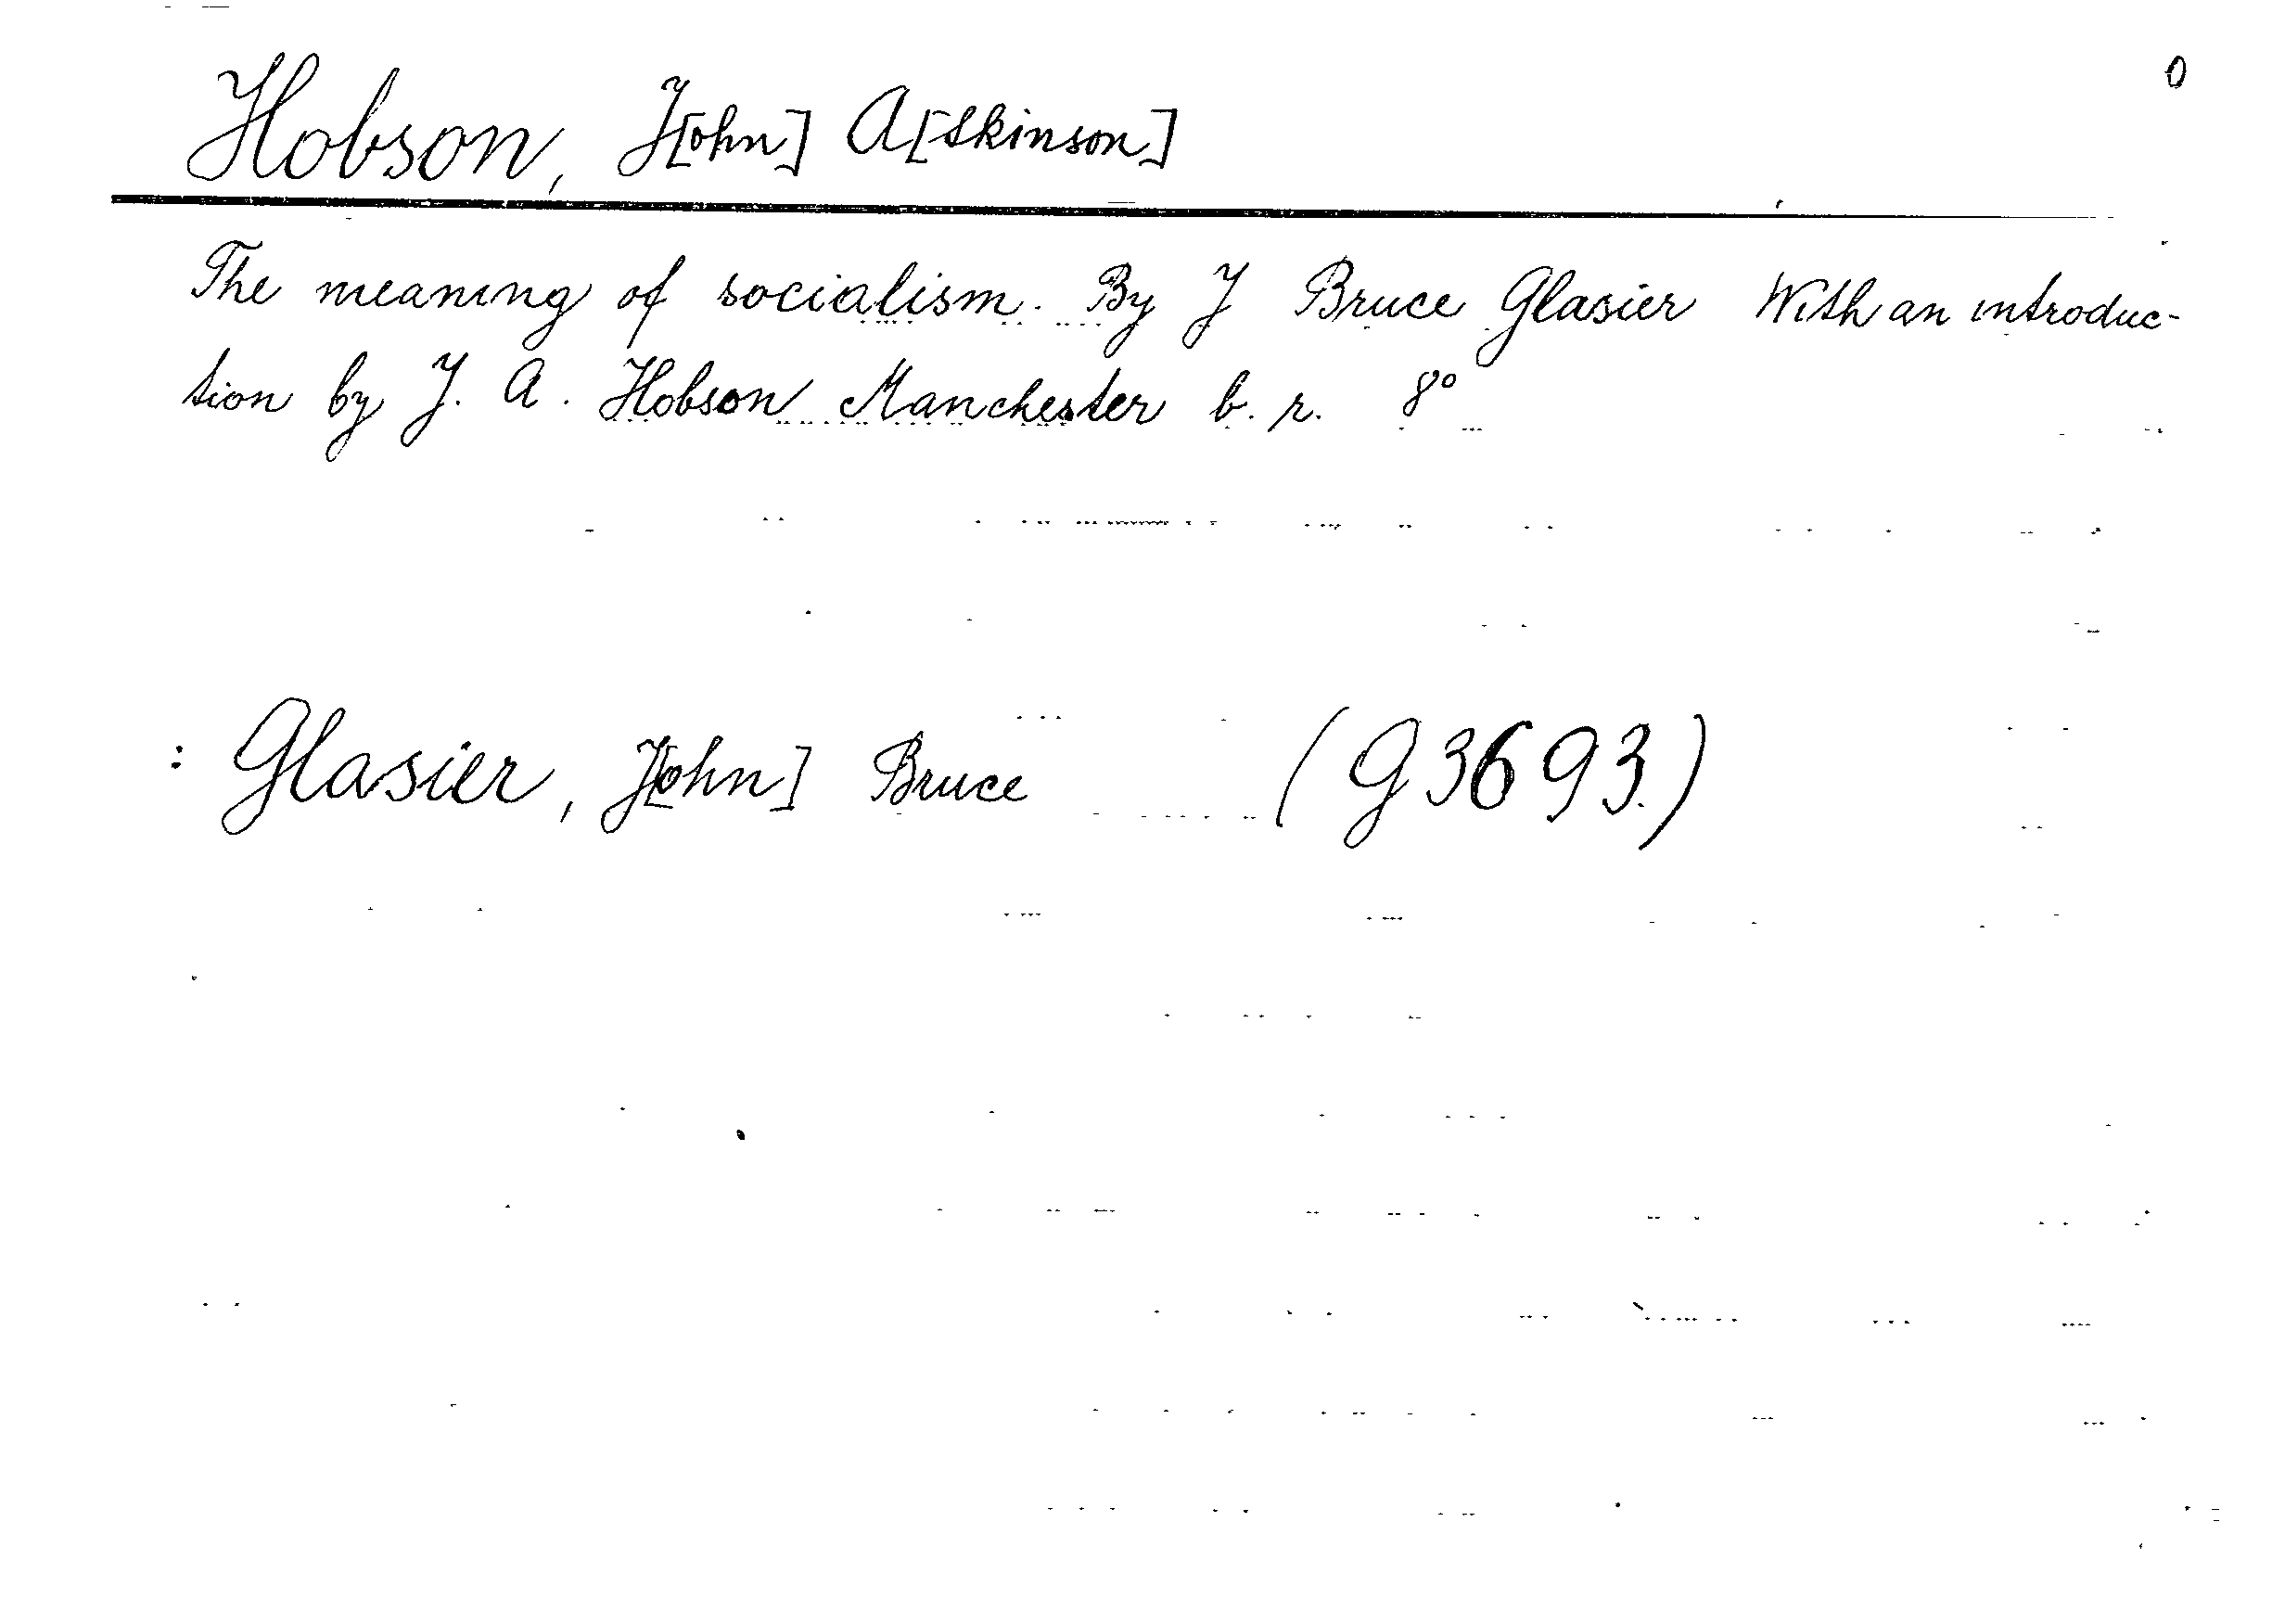 0
Hobson, J[ohn] A[tkinson]
The meaning of socialism. By J Bruce Glasier With an introduc-
tion by J. A. Hobson Manchester b. r. 8°
: Glasier, J[ohn] Bruce (G3693.)